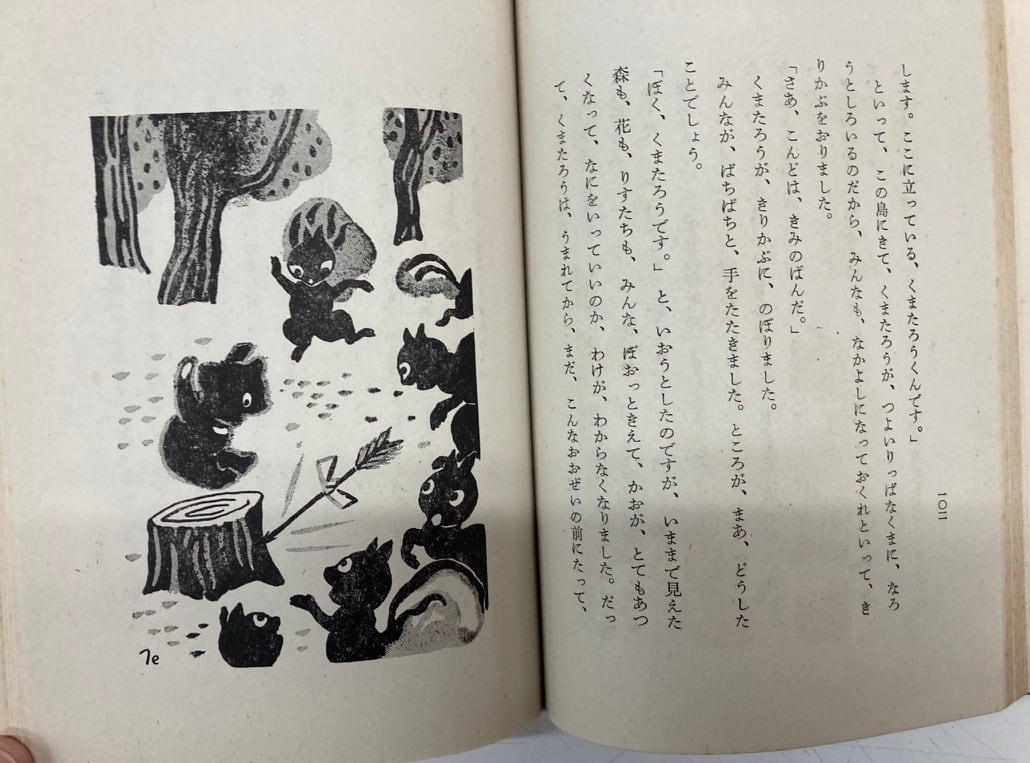 します。ここに立っている、くまたろうくんです。」
といって、この島にきて、くまたろうが、つよいりっぱなくまに、なろ
うとしろいるのだから、みんなも、なかよしになっておくれといって、き
りかぶをおりました。
「さあ、こんどは、きみのばんだ。」
くまたろうが、きりかぶに、のぼりました。
みんなが、ぱちぱちと、手をたたきました。ところが、まあ、どうした
ことでしょう。
「ぼく、くまたろうです。」と、いおうとしたのですが、いままで見えた
森も、花も、りすたちも、みんな、ぼおっときえて、かおが、とてもあつ
くなって、なにをいっていいのか、わけが、わからなくなりました。だっ
て、くまたろうは、うまれてから、まだ、こんなおおぜいの前にたって、
一〇二